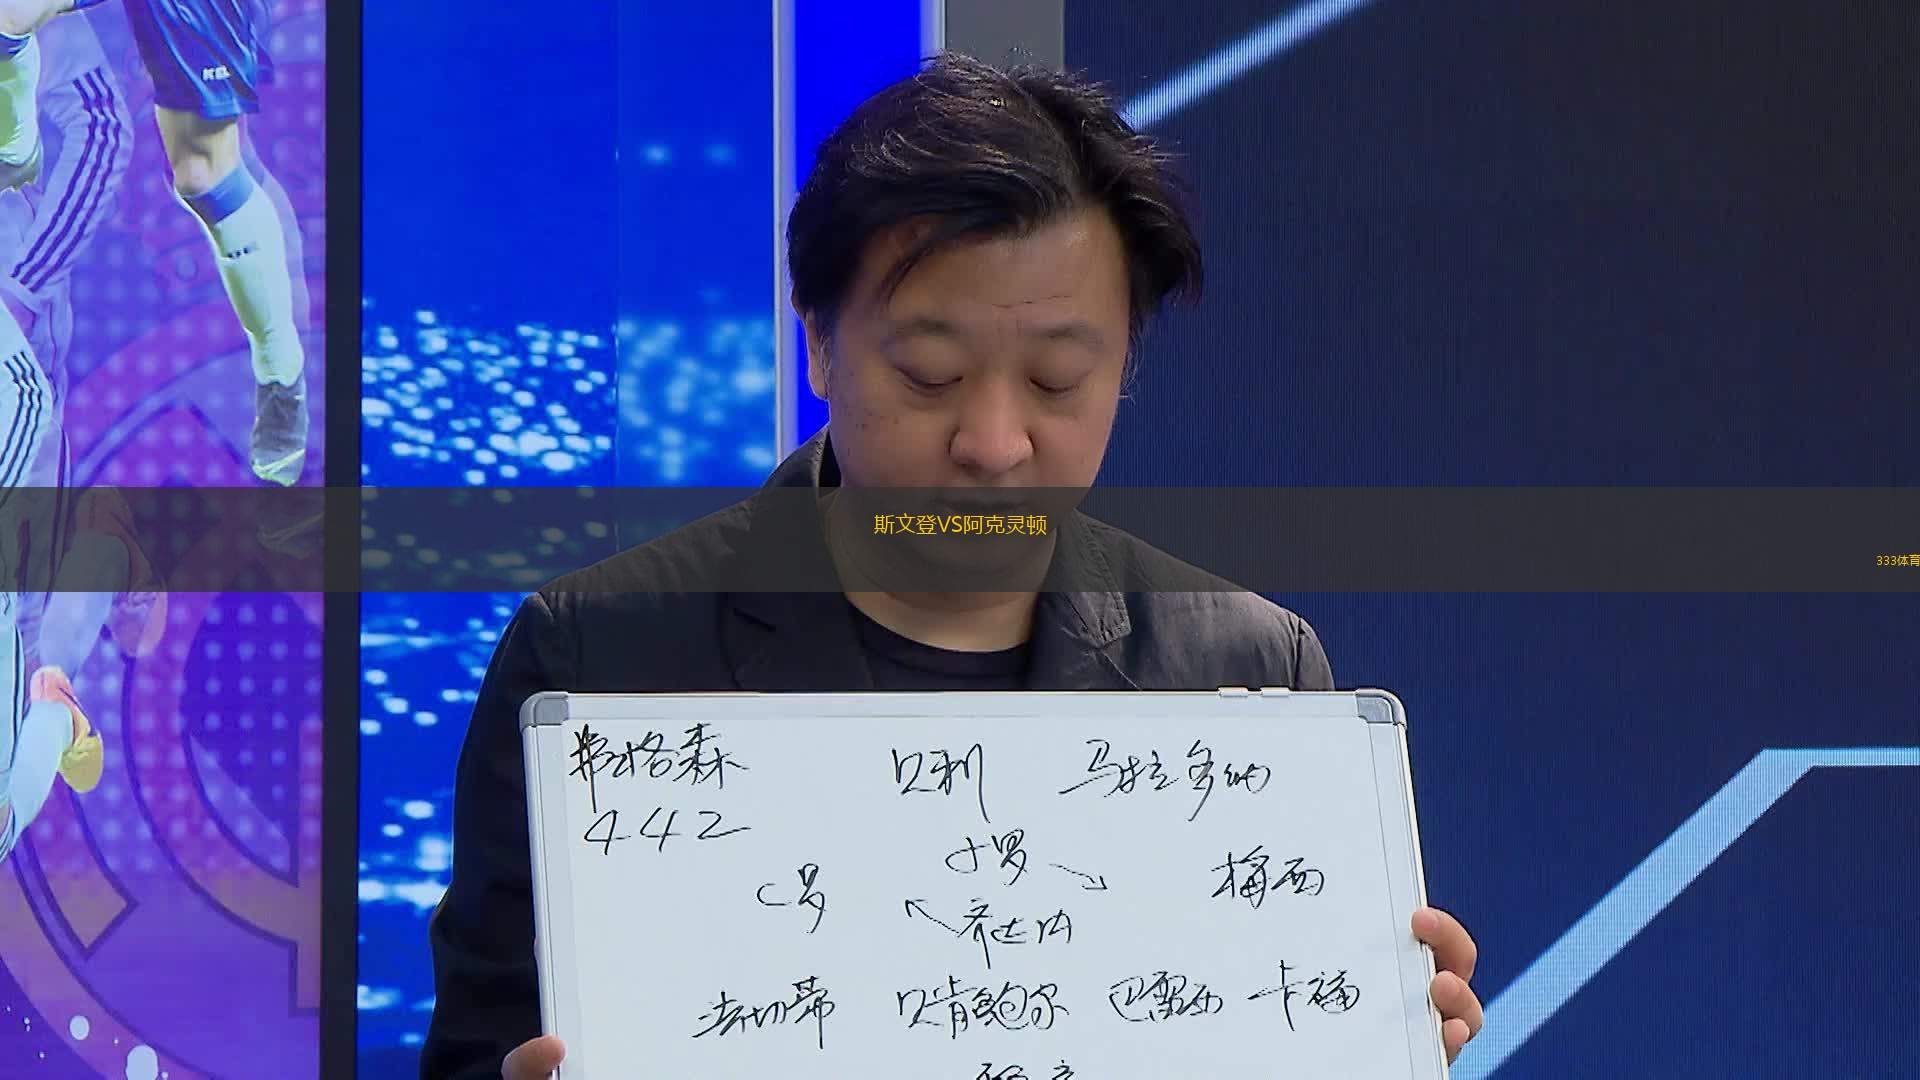 斯文登VS阿克灵顿
333体育
弗格森 贝利 马拉多纳
442
小罗
C罗 梅西
齐达内
法切蒂 贝肯鲍尔 巴雷西 卡福